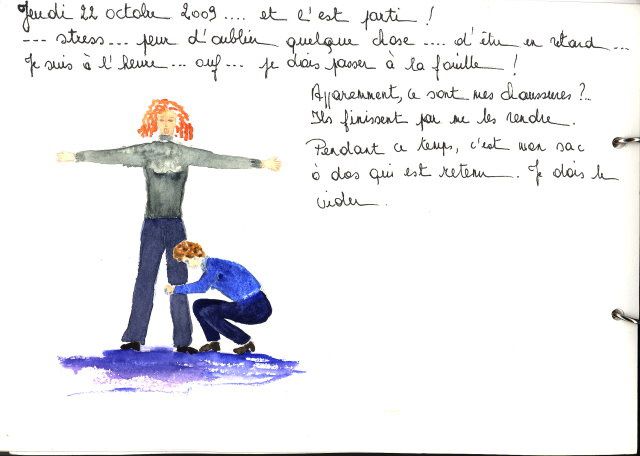 Jeudi 22 octobre 2009 .... et c'est parti !
--- stress... peur d'oublier quelque chose .... d'être en retard ...
Je suis à l'heure ... ouf ... je dois passer à la fouille !
Apparemment, ce sont mes chaussures ?..
Ils finissent par me les rendre.
Pendant ce temps, c'est mon sac
à dos qui est retenu. Je dois le
vider.